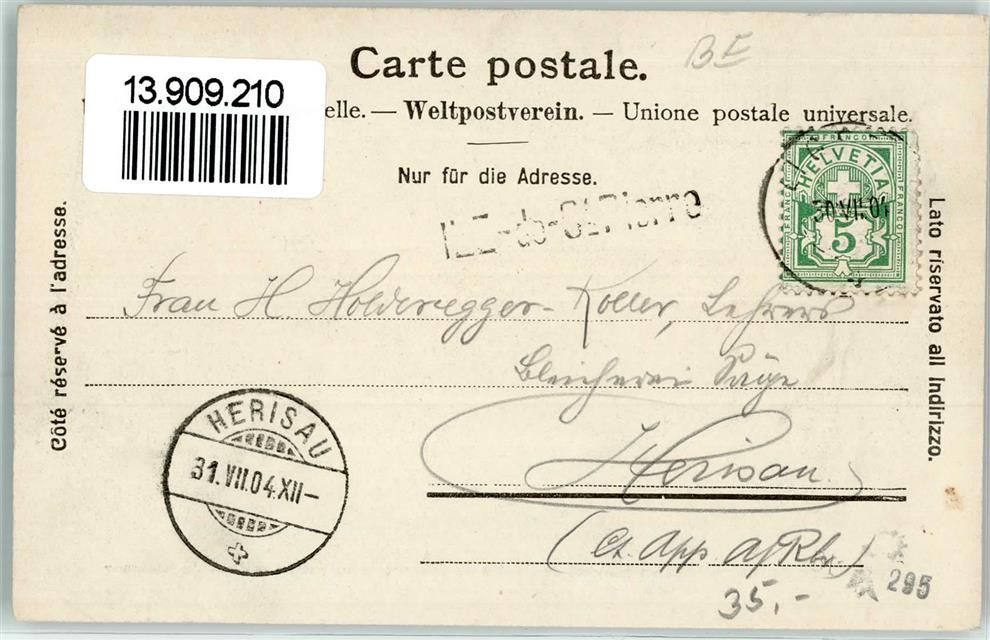 BE
Carte postale.
13.909.210
elle. — Weltpostverein. — Unione postale universale.
Nur für die Adresse.
ILE-de-St.Pierre
FRANCO
HELVETIA
FRANCO
FRANCO
5
30 VII 04
Côté réservé à l'adresse.
Lato riservato all Indirizzo.
Frau H. Holderegger-Koller, Lehrers
Bleicherei Säge
Herisau.
HERISAU
31. VII. 04. XII–
(Ct. App. A/Rh.)
295
35,-